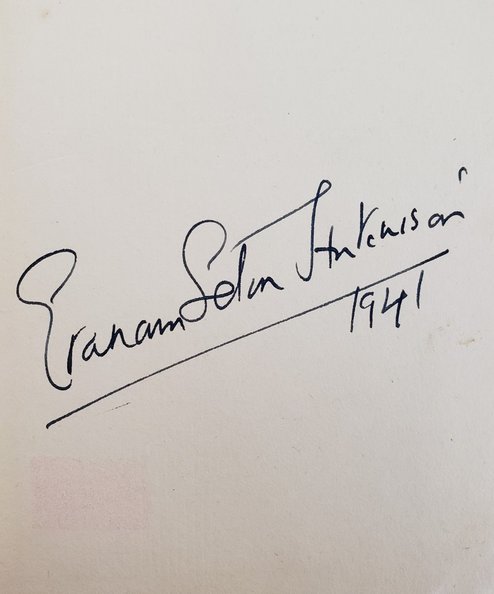 Graham Seton Hutchison
1941